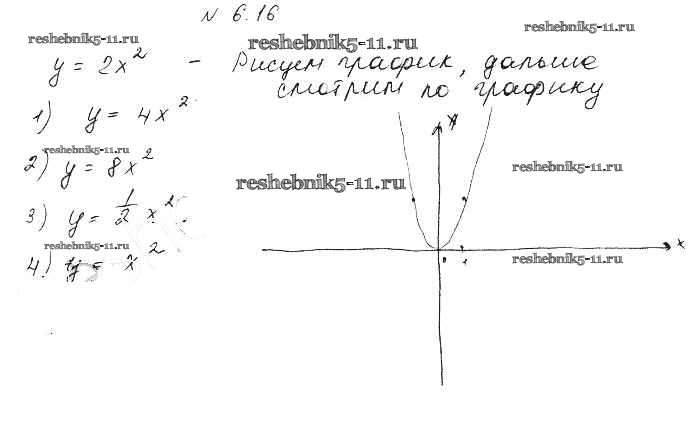 N 6.16
reshebnik5-11.ru
reshebnik5-11.ru
reshebnik5-11.ru
y = 2x² - Рисуем график, дальше
смотрим по графику
1) y = 4x²
reshebnik5-11.ru
2) y = 8x²
reshebnik5-11.ru
reshebnik5-11.ru
3) y = 1/2 x²
reshebnik5-11.ru
4) y = x²
reshebnik5-11.ru
y
x
0
1